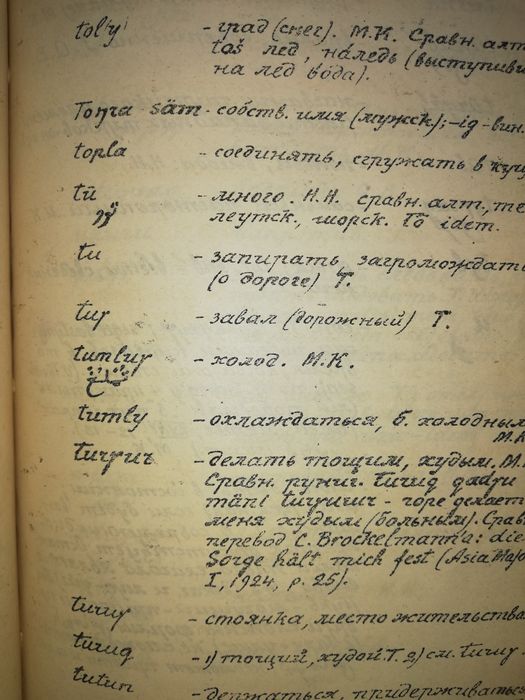 tolʼy - град (снег). М.К. Сравн. алт.
toš лёд, наледь (выступивш
на лёд вода).
Toŋra säm - собств. имя (мужск); -ig - вин.
topla - соединять, сгружать в куч
tü - много. Н.Н. сравн. алт., те
леутск., шорск. tö idem.
tu - запирать, загромождат
(о дороге) Т.
tuɣ - завал (дорожный) Т.
tumluɣ - холод. М.К.
tumly - охлаждаться, б. холодным
М.К
turɣur - делать тощим, худым. М.
Сравн. рунич. turuq qadɣu
mäni turɣurur - горе делает
меня худым (больным). Срав
перевод C. Brockelmann'a: die
Sorge hält mich fest (Asia Majo
I, 1924, p. 25).
turuɣ - стоянка, место жительства
turuq - 1) тощий, худой. Т. 2) см. turuɣ
tutun - держаться, придерживатьс